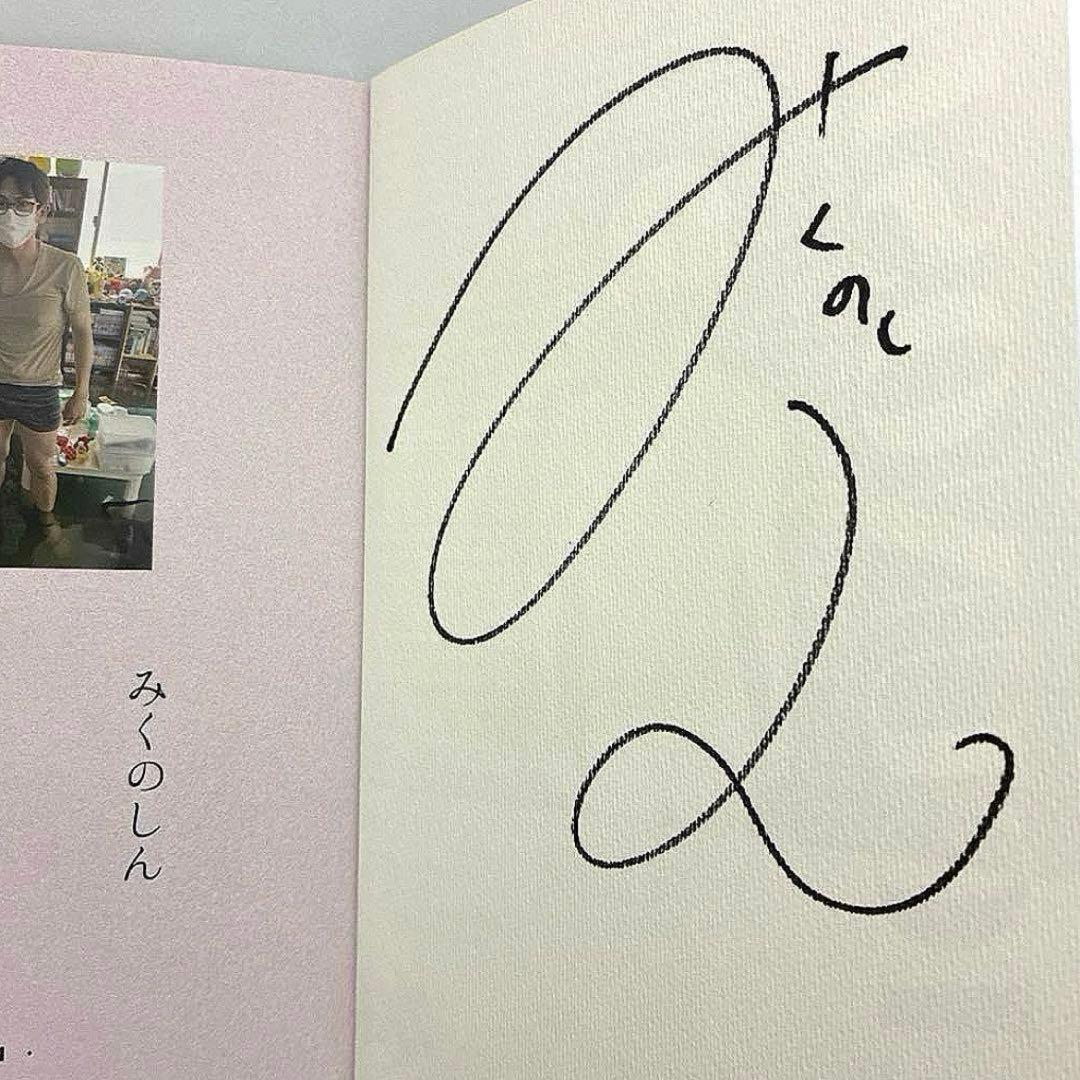 みくのしん
みくのしん